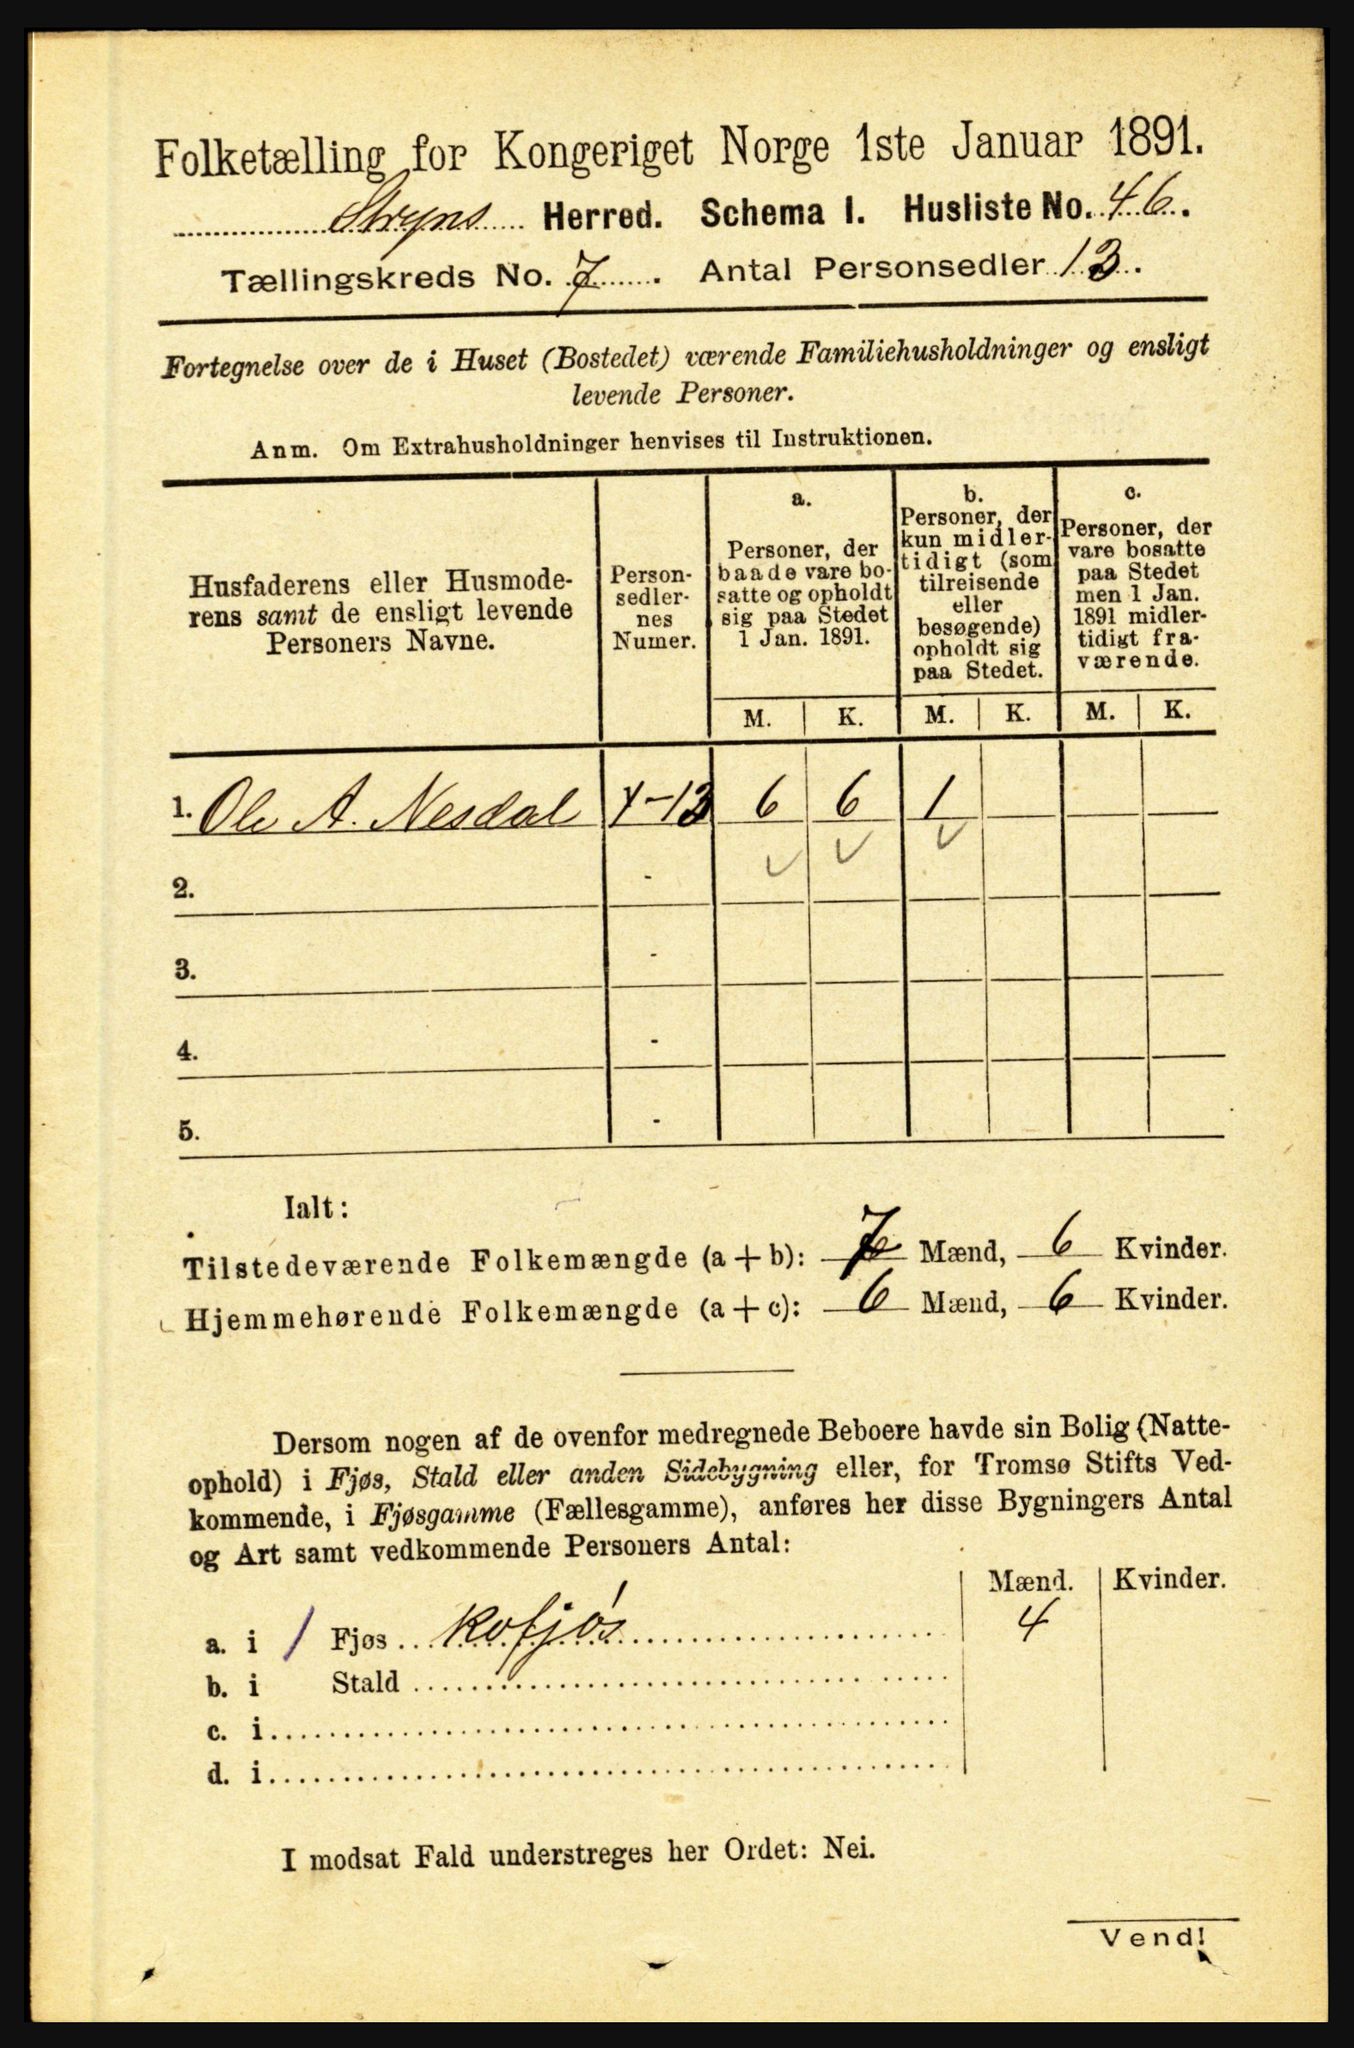 Folketælling for Kongeriget Norge 1ste Januar 1891.
Stryns Herred. Schema I. Husliste No. 46.
Tællingskreds No. 7. Antal Personsedler 13.
Fortegnelse over de i Huset (Bostedet) værende Familiehusholdninger og ensligt
levende Personer.
Anm. Om Extrahusholdninger henvises til Instruktionen.
Husfaderens eller Husmode-
rens samt de ensligt levende
Personers Navne.
Person-
sedler-
nes
Numer.
a.
Personer, der
baade vare bo-
satte og opholdt
sig paa Stedet
1 Jan. 1891.
b.
Personer, der
kun midler-
tidigt (som
tilreisende
eller
besøgende)
opholdt sig
paa Stedet.
c.
Personer, der
vare bosatte
paa Stedet
men 1 Jan.
1891 midler-
tidigt fra-
værende.
M. K. M. K. M. K.
1. Ole A. Nesdal 1-13 6 6 1
2. -
3. -
4. -
5. -
Ialt:
Tilstedeværende Folkemængde (a+b): 7 Mænd, 6 Kvinder.
Hjemmehørende Folkemængde (a+c): 6 Mænd, 6 Kvinder.
Dersom nogen af de ovenfor medregnede Beboere havde sin Bolig (Natte-
ophold) i Fjøs, Stald eller anden Sidebygning eller, for Tromsø Stifts Ved-
kommende, i Fjøsgamme (Fællesgamme), anføres her disse Bygningers Antal
og Art samt vedkommende Personers Antal:
Mænd. Kvinder.
a. i 1 Fjøs Kofjøs 4
b. i Stald
c. i
d. i
I modsat Fald understreges her Ordet: Nei.
Vend!